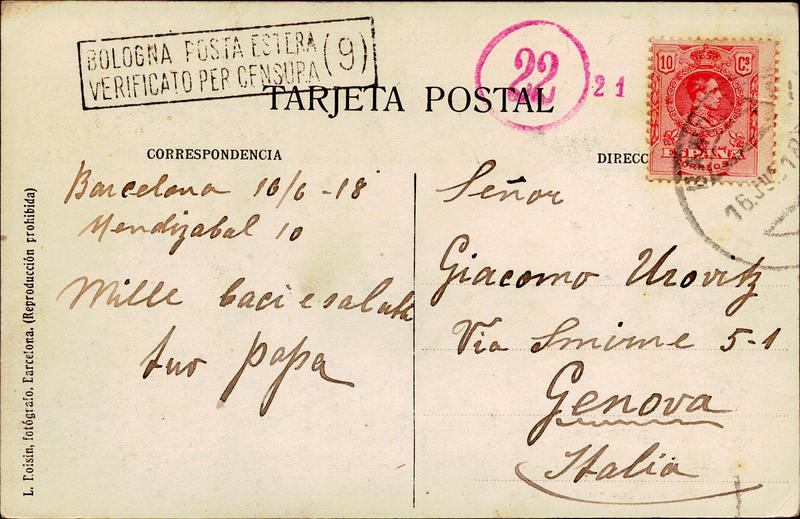 BOLOGNA POSTA ESTERA
VERIFICATO PER CENSURA (9)
22
21
10 Cs
ESPAÑA
CORREOS
TARJETA POSTAL
CORRESPONDENCIA
DIRECC
Barcelona 16/6-18
Mendizabal 10
Mille baci e saluti
tuo papa
Señor
Giacomo Urovitz
Via Smirne 5-1
Genova
Italia
L. Roisin, fotógrafo. Barcelona. (Reproducción prohibida)